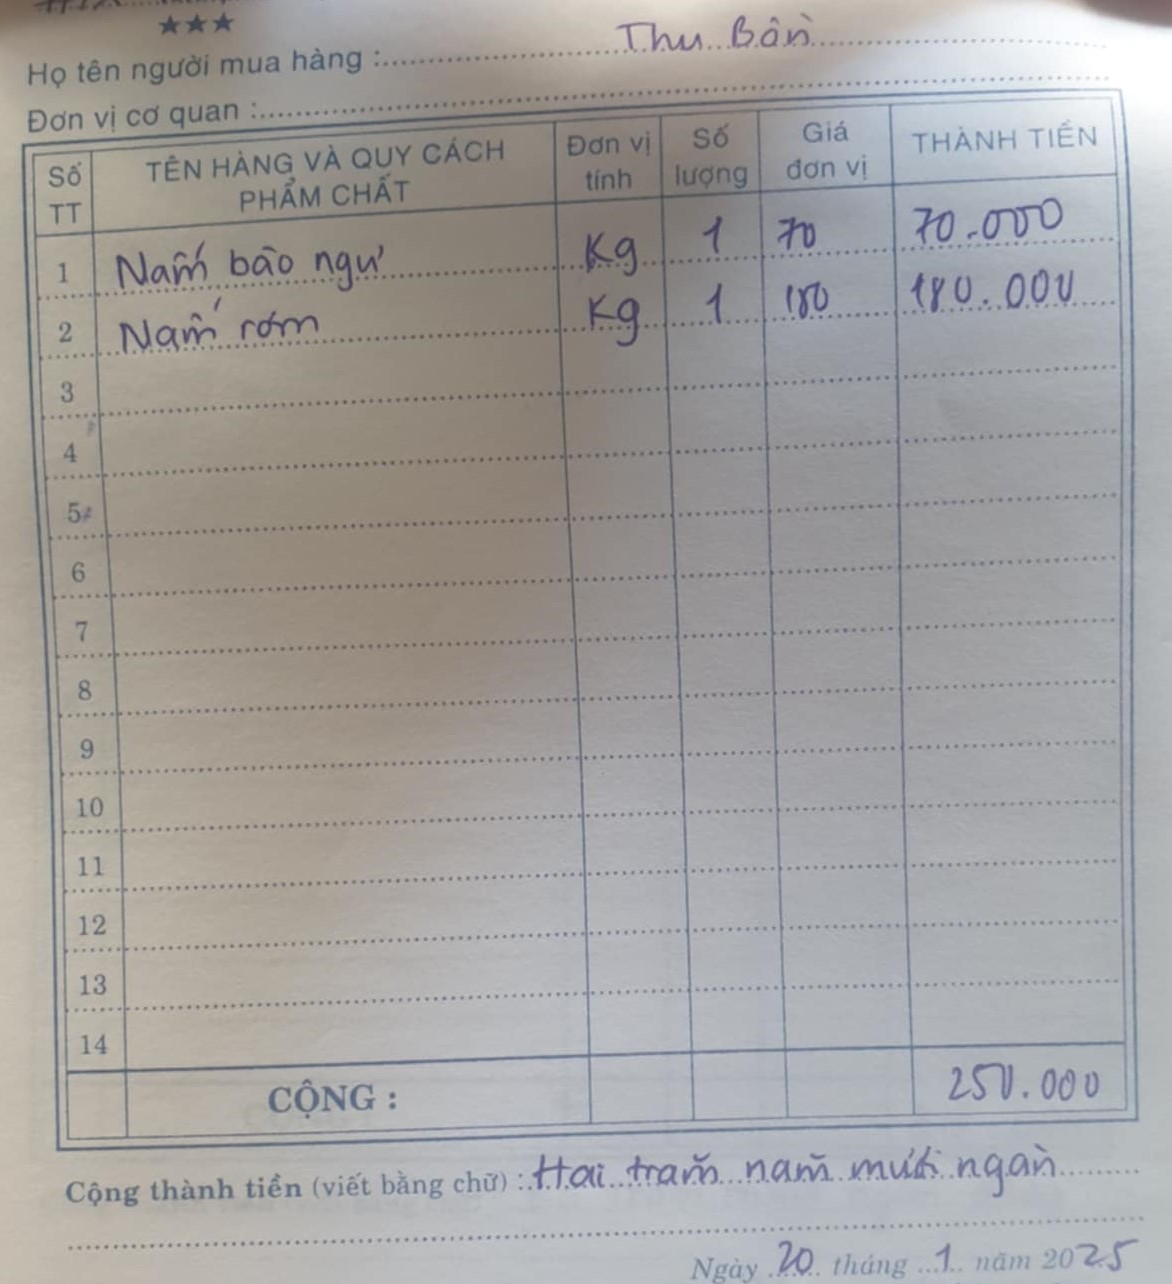 ★★★
Họ tên người mua hàng : Thu Bồn
Đơn vị cơ quan :
Số TT TÊN HÀNG VÀ QUY CÁCH PHẨM CHẤT Đơn vị tính Số lượng Giá đơn vị THÀNH TIỀN
1 Nấm bào ngư Kg 1 70 70.000
2 Nấm rơm Kg 1 180 180.000
3
4
5
6
7
8
9
10
11
12
13
14
CỘNG : 250.000
Cộng thành tiền (viết bằng chữ) : Hai trăm năm mươi ngàn
Ngày 20 tháng 1 năm 2025